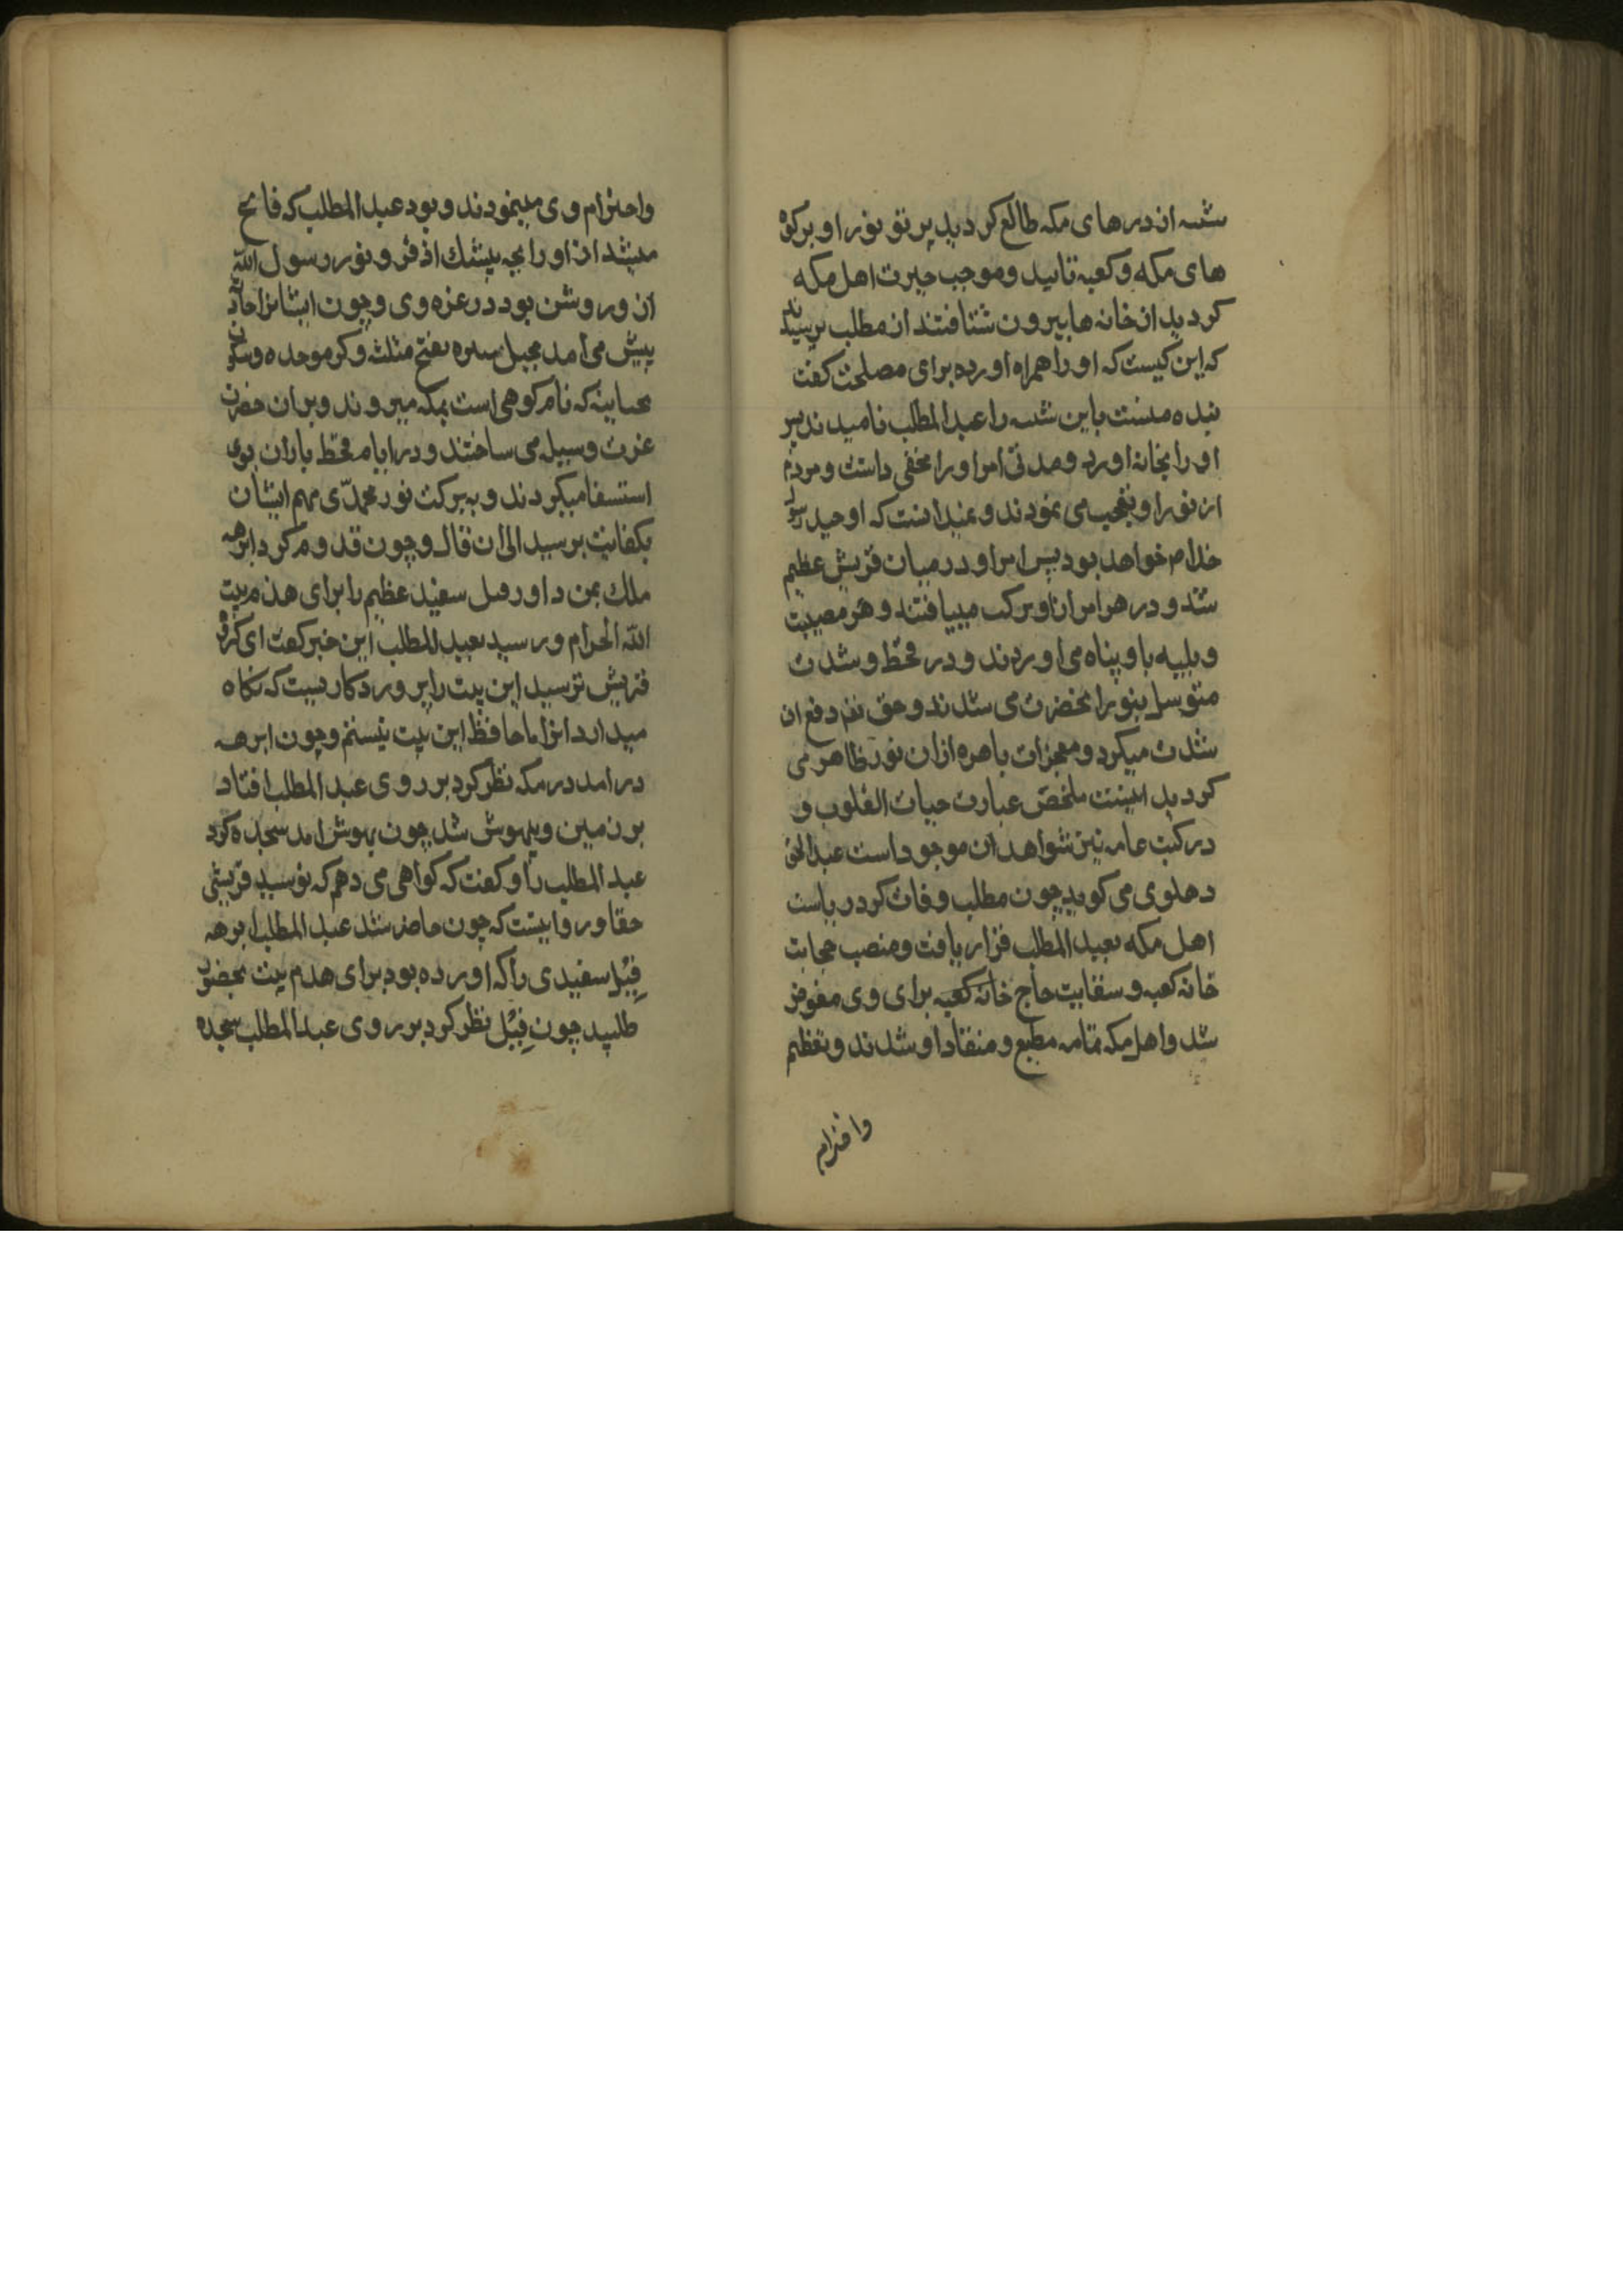 شیبه از درهای مکه طالع کردید پرتو نور او بر کوه
های مکه و کعبه تابید و موجب حیرت اهل مکه
کردید از خانه ها بیرون شتافتند از مطلب پرسیدند
که این کیست که او را همراه اورده برای مصلحت کفت
بنده منست باین شیبه را عبدالمطلب نامیدند پس
او را بخانه اورد و مدتی امر او را مخفی داشت و مردم
از نور او تعجب می نمودند و نمیدانست که او جد رسول
خدام خواهد بود پس امر او در میان قریش عظیم
شد و در هر امر از او برکت مییافتند و هر مصیبت
و بلیه باو پناه می اوردند و در قحط و شدت
متوسل بنور انحضرت می شدند و حق تعم دفع ان
شدت میکرد و معجزات باهره ازان نور ظاهر می
کردید اینست ملخص عبارت حیات القلوب و
در کتب عامه نیز شواهد ان موجود است عبدالحق
دهلوی می کوید چون مطلب وفات کرد ریاست
اهل مکه بعبد المطلب قرار یافت و منصب حجابت
خانه کعبه و سقایت حاج خانه کعبه برای وی مفوض
شد و اهل مکه تمامه مطیع و منقاد او شدند و تعظیم
واحترام
واحترام وی مینمودند و بود عبدالمطلب که فایح
میشد از او رایحه مشک اذفر و نور رسول الله
ان ور روشن بود در غره وی و چون ایشانرا حادثه
پیش می امد بجبل ثبیره بفتح مثلثه و کسر موحده و سکون
تحتانیه که نام کوهی است بمکه میروند و بران حضرت
عزت وسیله می ساختند و در ایام قحط باران بوی
استسقا میکردند و به برکت نور محمدی مهم ایشان
بکفایت برسید الی ان قال و چون قدوم کرد ابرهه
ملک یمن د اور فیل سفید عظیم را برای هدم بیت
الله الحرام ور سید بعبد المطلب این خبر کفت ای کروه
قریش ترسید این بیت را پرورد کار یست که نکاه
میدارد انرا ما حافظ این بیت نیستم و چون ابرهه
در امد در مکه نظر کرد بر روی عبد المطلب افتاد
بر زمین و بیهوش شد چون بهوش امد سجده کرد
عبد المطلب را و کفت که کواهی می دهم که تو سید قریشی
حقا و روایتست که چون حاضر شد عبد المطلب ابرهه
فیل سفیدی را که اورده بود برای هدم بیت بحضور
طلبید چون فیل نظر کرد بر روی عبدالمطلب سجده